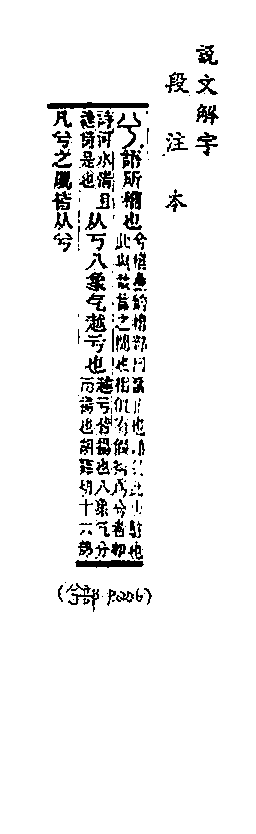 說文解字
段注本
兮語所稽也兮稽曡韵稽部曰留止也語於此少駐也此與哉言之閒也相似有假猗爲兮者如
詩河水清且漣猗是也从丂八象气越亏也越亏皆揚也八象气分而揚也胡雞切十六部
凡兮之屬皆从兮
(兮部 P.206)